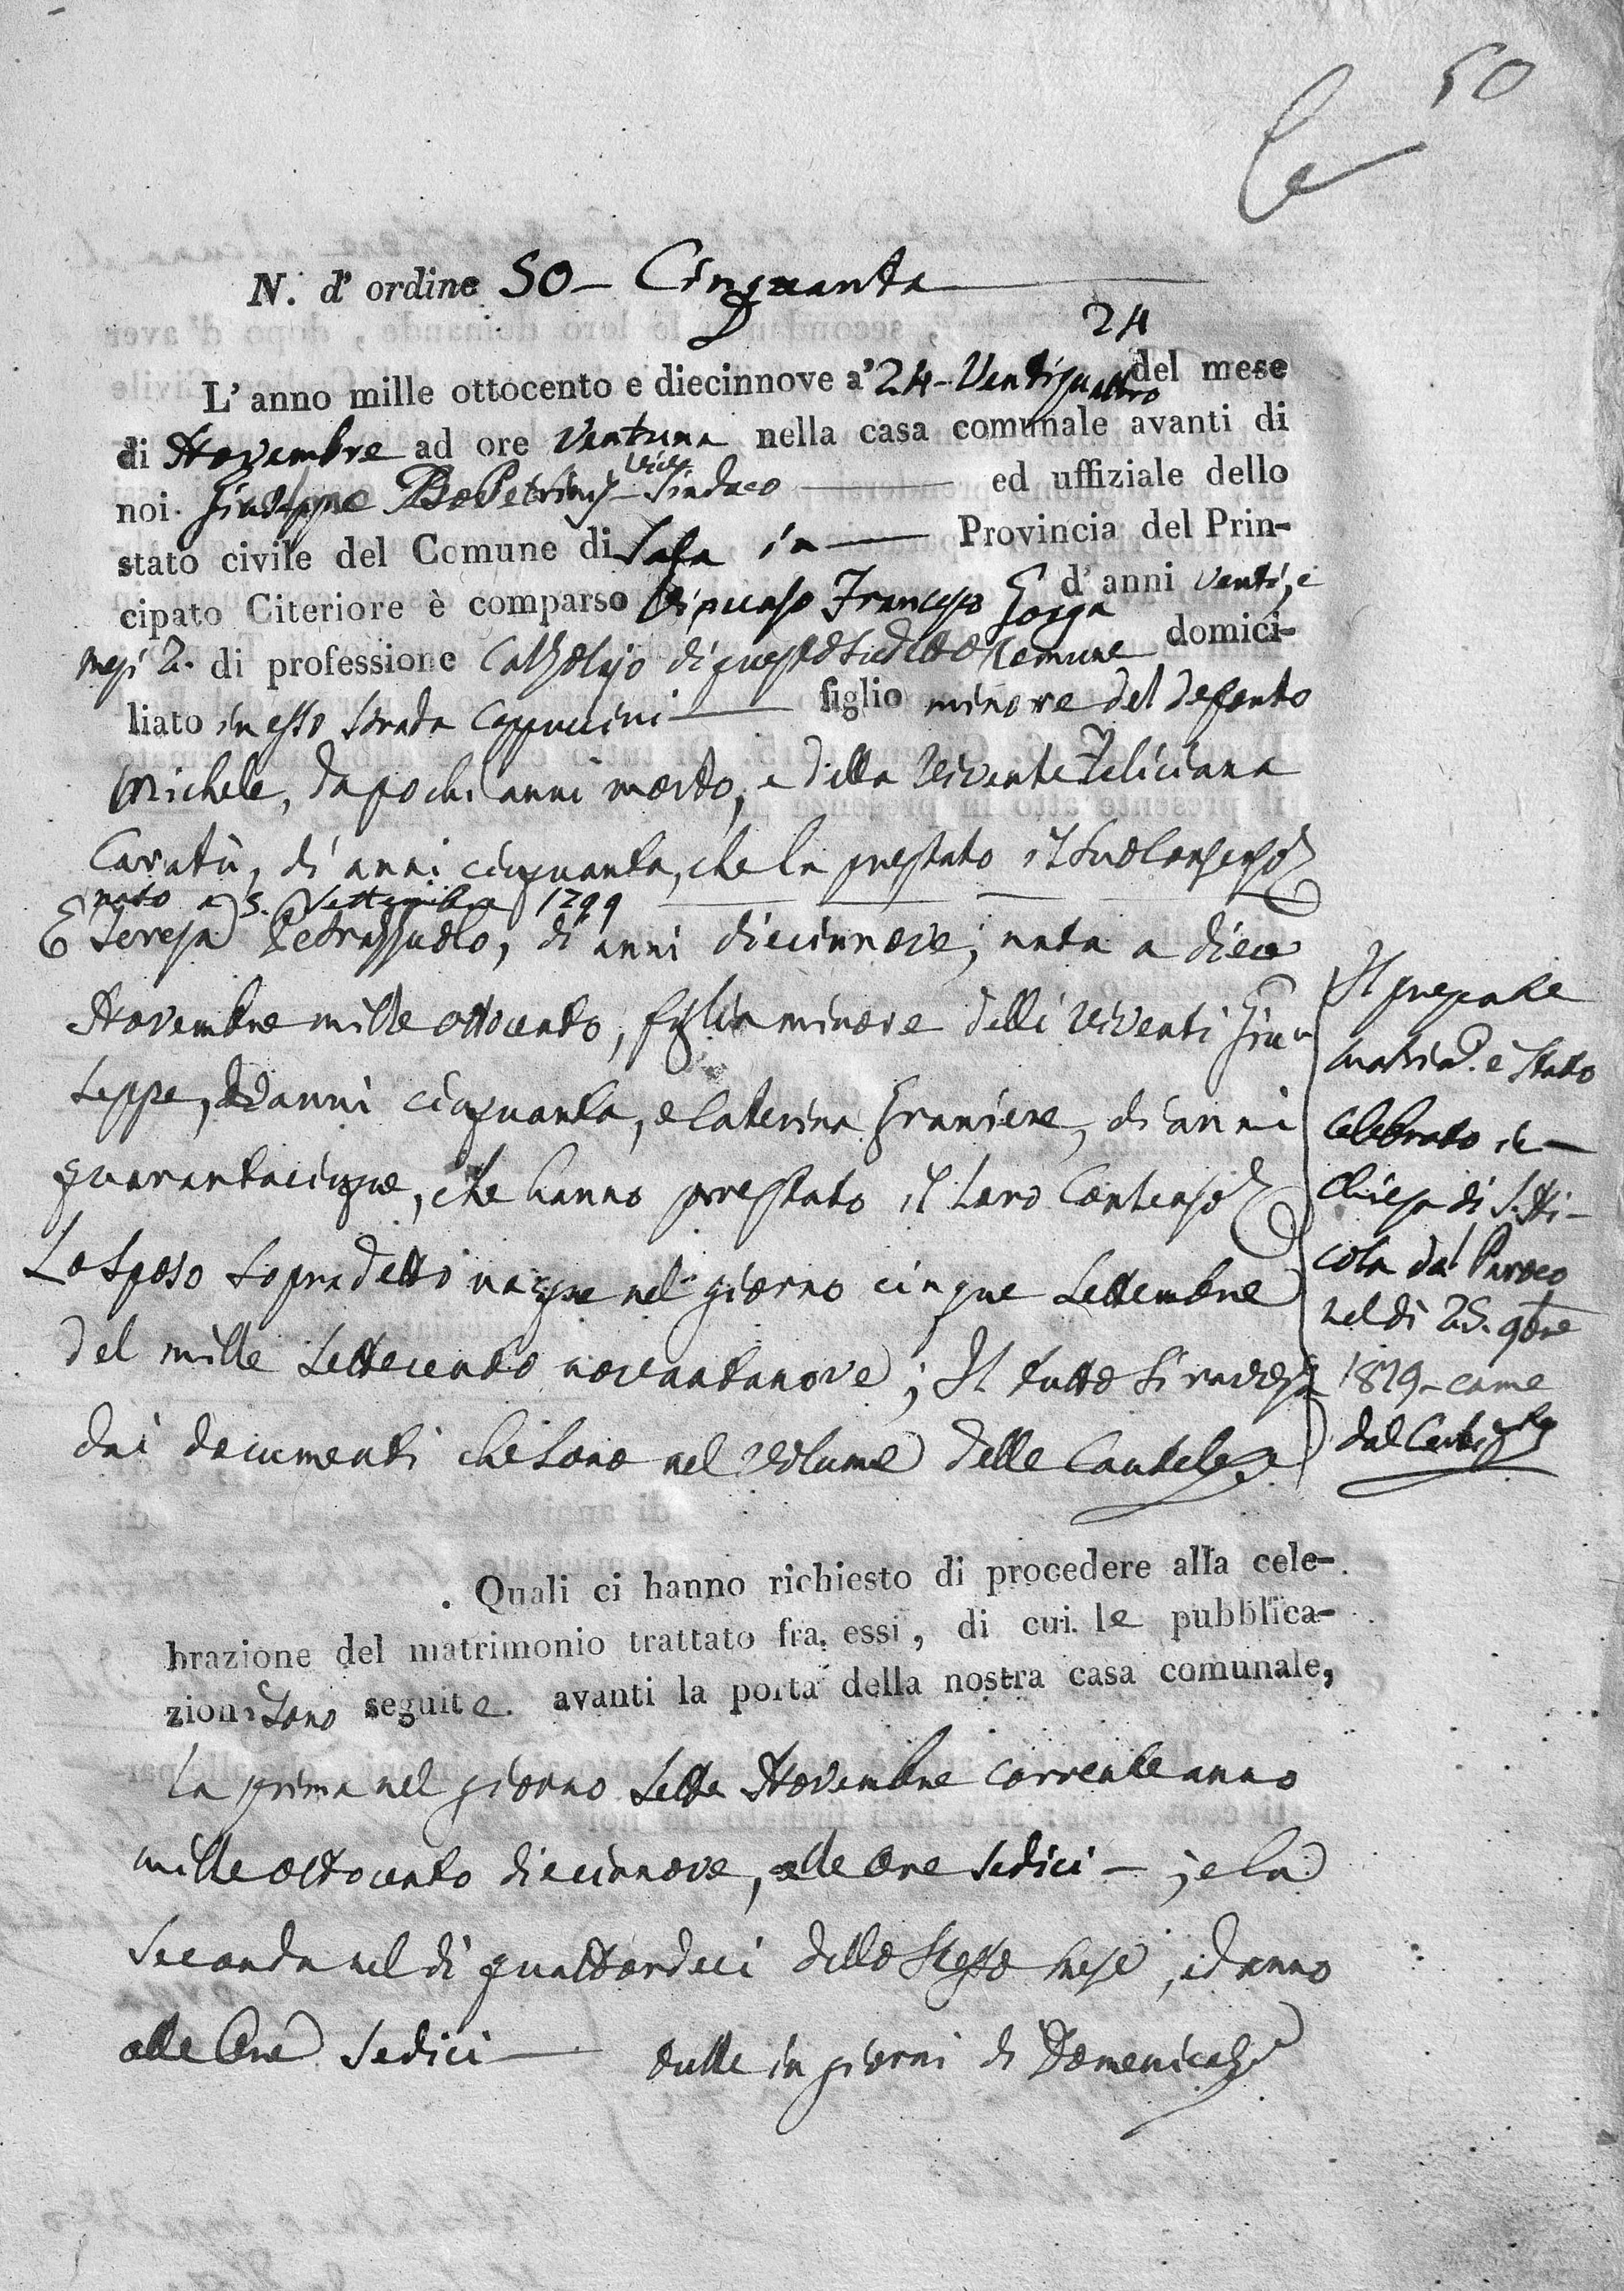 50
N. d' ordine 50 - Cinquanta
24
L' anno mille ottocento e diecinnove a' 24 - Ventiquattro del mese
di Novembre ad ore Ventuna nella casa comunale avanti di
noi Giuseppe Sindaco ed uffiziale dello
stato civile del Comune di Sala in Provincia del Prin-
cipato Citeriore è comparso Francesco d' anni venti, e
mesi 2. di professione di questo sudetto Comune domici-
liato in esso strada Cappuccini figlio minore del defonto
Michele, da pochi anni morto, e della vivente Feliciana
Caratù, di anni cinquanta, che la prestato il suo consenso
nato a 5. Settembre 1799
E Teresa Petrazzuolo, di anni diecinnove; nata a diece
Novembre mille ottocento, figlia minore delli viventi Giu-
seppe, di anni cinquanta, e Caterina Graniere, di anni
quarantacinque, che hanno prestato il loro Consenso
Lo sposo sopradetto nacque nel giorno cinque Settembre
del mille settecento novantanove; Il tutto si ravvisa
dai documenti che sono nel volume delle Cautele
Il presente
matrim. è stato
celebrato in
Chiesa di S. Ni-
cola dal Paroco
nel dì 25. 9bre
1819 - come
dal Certif.
Quali ci hanno richiesto di procedere alla cele-
brazione del matrimonio trattato fra essi, di cui le pubblica-
zioni sono seguite avanti la porta della nostra casa comunale,
la prima nel giorno sette Novembre corrente anno
mille ottocento diecinnove, alle ore sedici - ; e la
seconda nel dì quattordeci dello stesso mese, ed anno
alle ore sedici in giorni di Domeniche